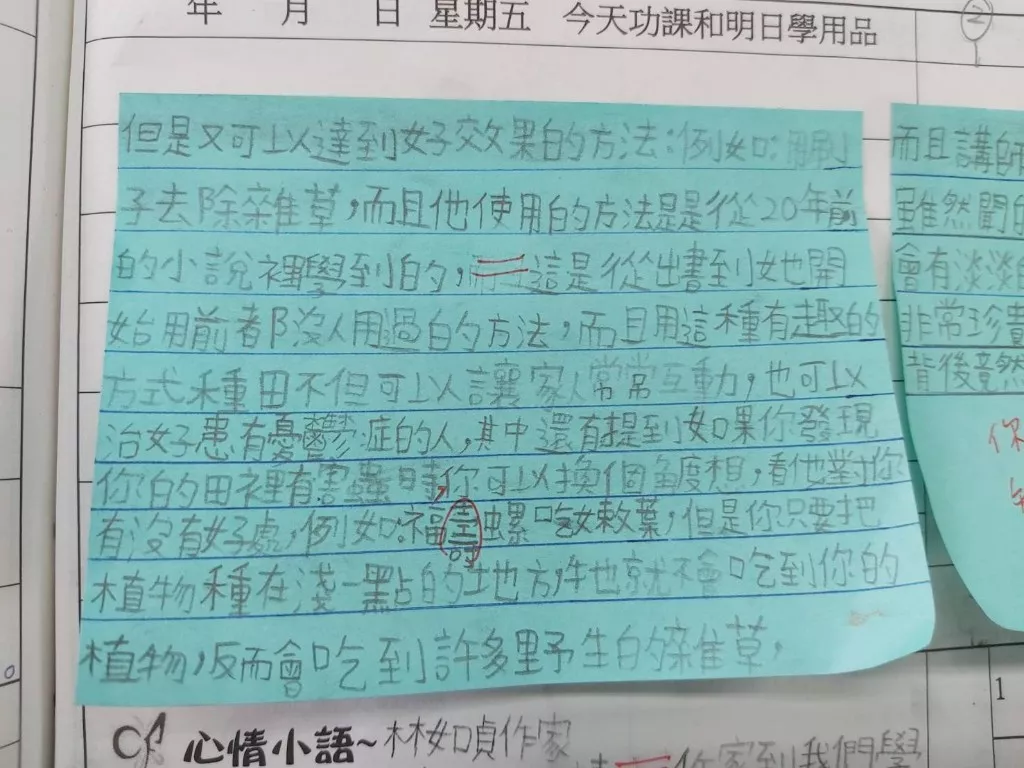 年 月 日 星期五 今天功課和明日學用品
2
但是又可以達到好效果的方法:例如:用刷
子去除雜草,而且他使用的方法是是從20年前
的小說裡學到的,這是從出書到她開
始用前都沒人用過的方法,而且用這種有趣的
方式種田不但可以讓家人常常互動,也可以
治好患有憂鬱症的人,其中還有提到如果你發現
你的田裡有害蟲時你可以換個角度想,看他對你
有沒有好處,例如:福壽螺吃嫩葉,但是你只要把
植物種在淺一點的地方,牠就不會吃到你的
植物,反而會吃到許多野生的雜草,
而且講師
雖然聞的
會有淡淡的
非常珍貴
背後竟然
你
心情小語~林如貞作家
作家到我們學
1